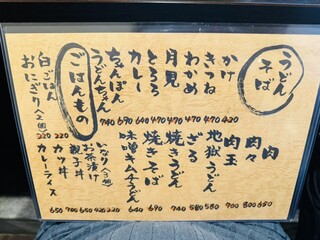 うどん
そば
かけ 420
きつね 470
わかめ 470
月見 470
とろろ
カレー 640
ちゃんぽん 690
うどんちゃん 740
肉 650
肉々 800
肉玉 700
地獄うどん 580
ざる 580
焼きうどん 740
焼きそば 690
味噌キムチうどん 640
ごはんもの
白ごはん 220
おにぎり(2個) 220
いなり 220
お茶漬け 420
親子丼 650
カツ丼 700
カレーライス 650